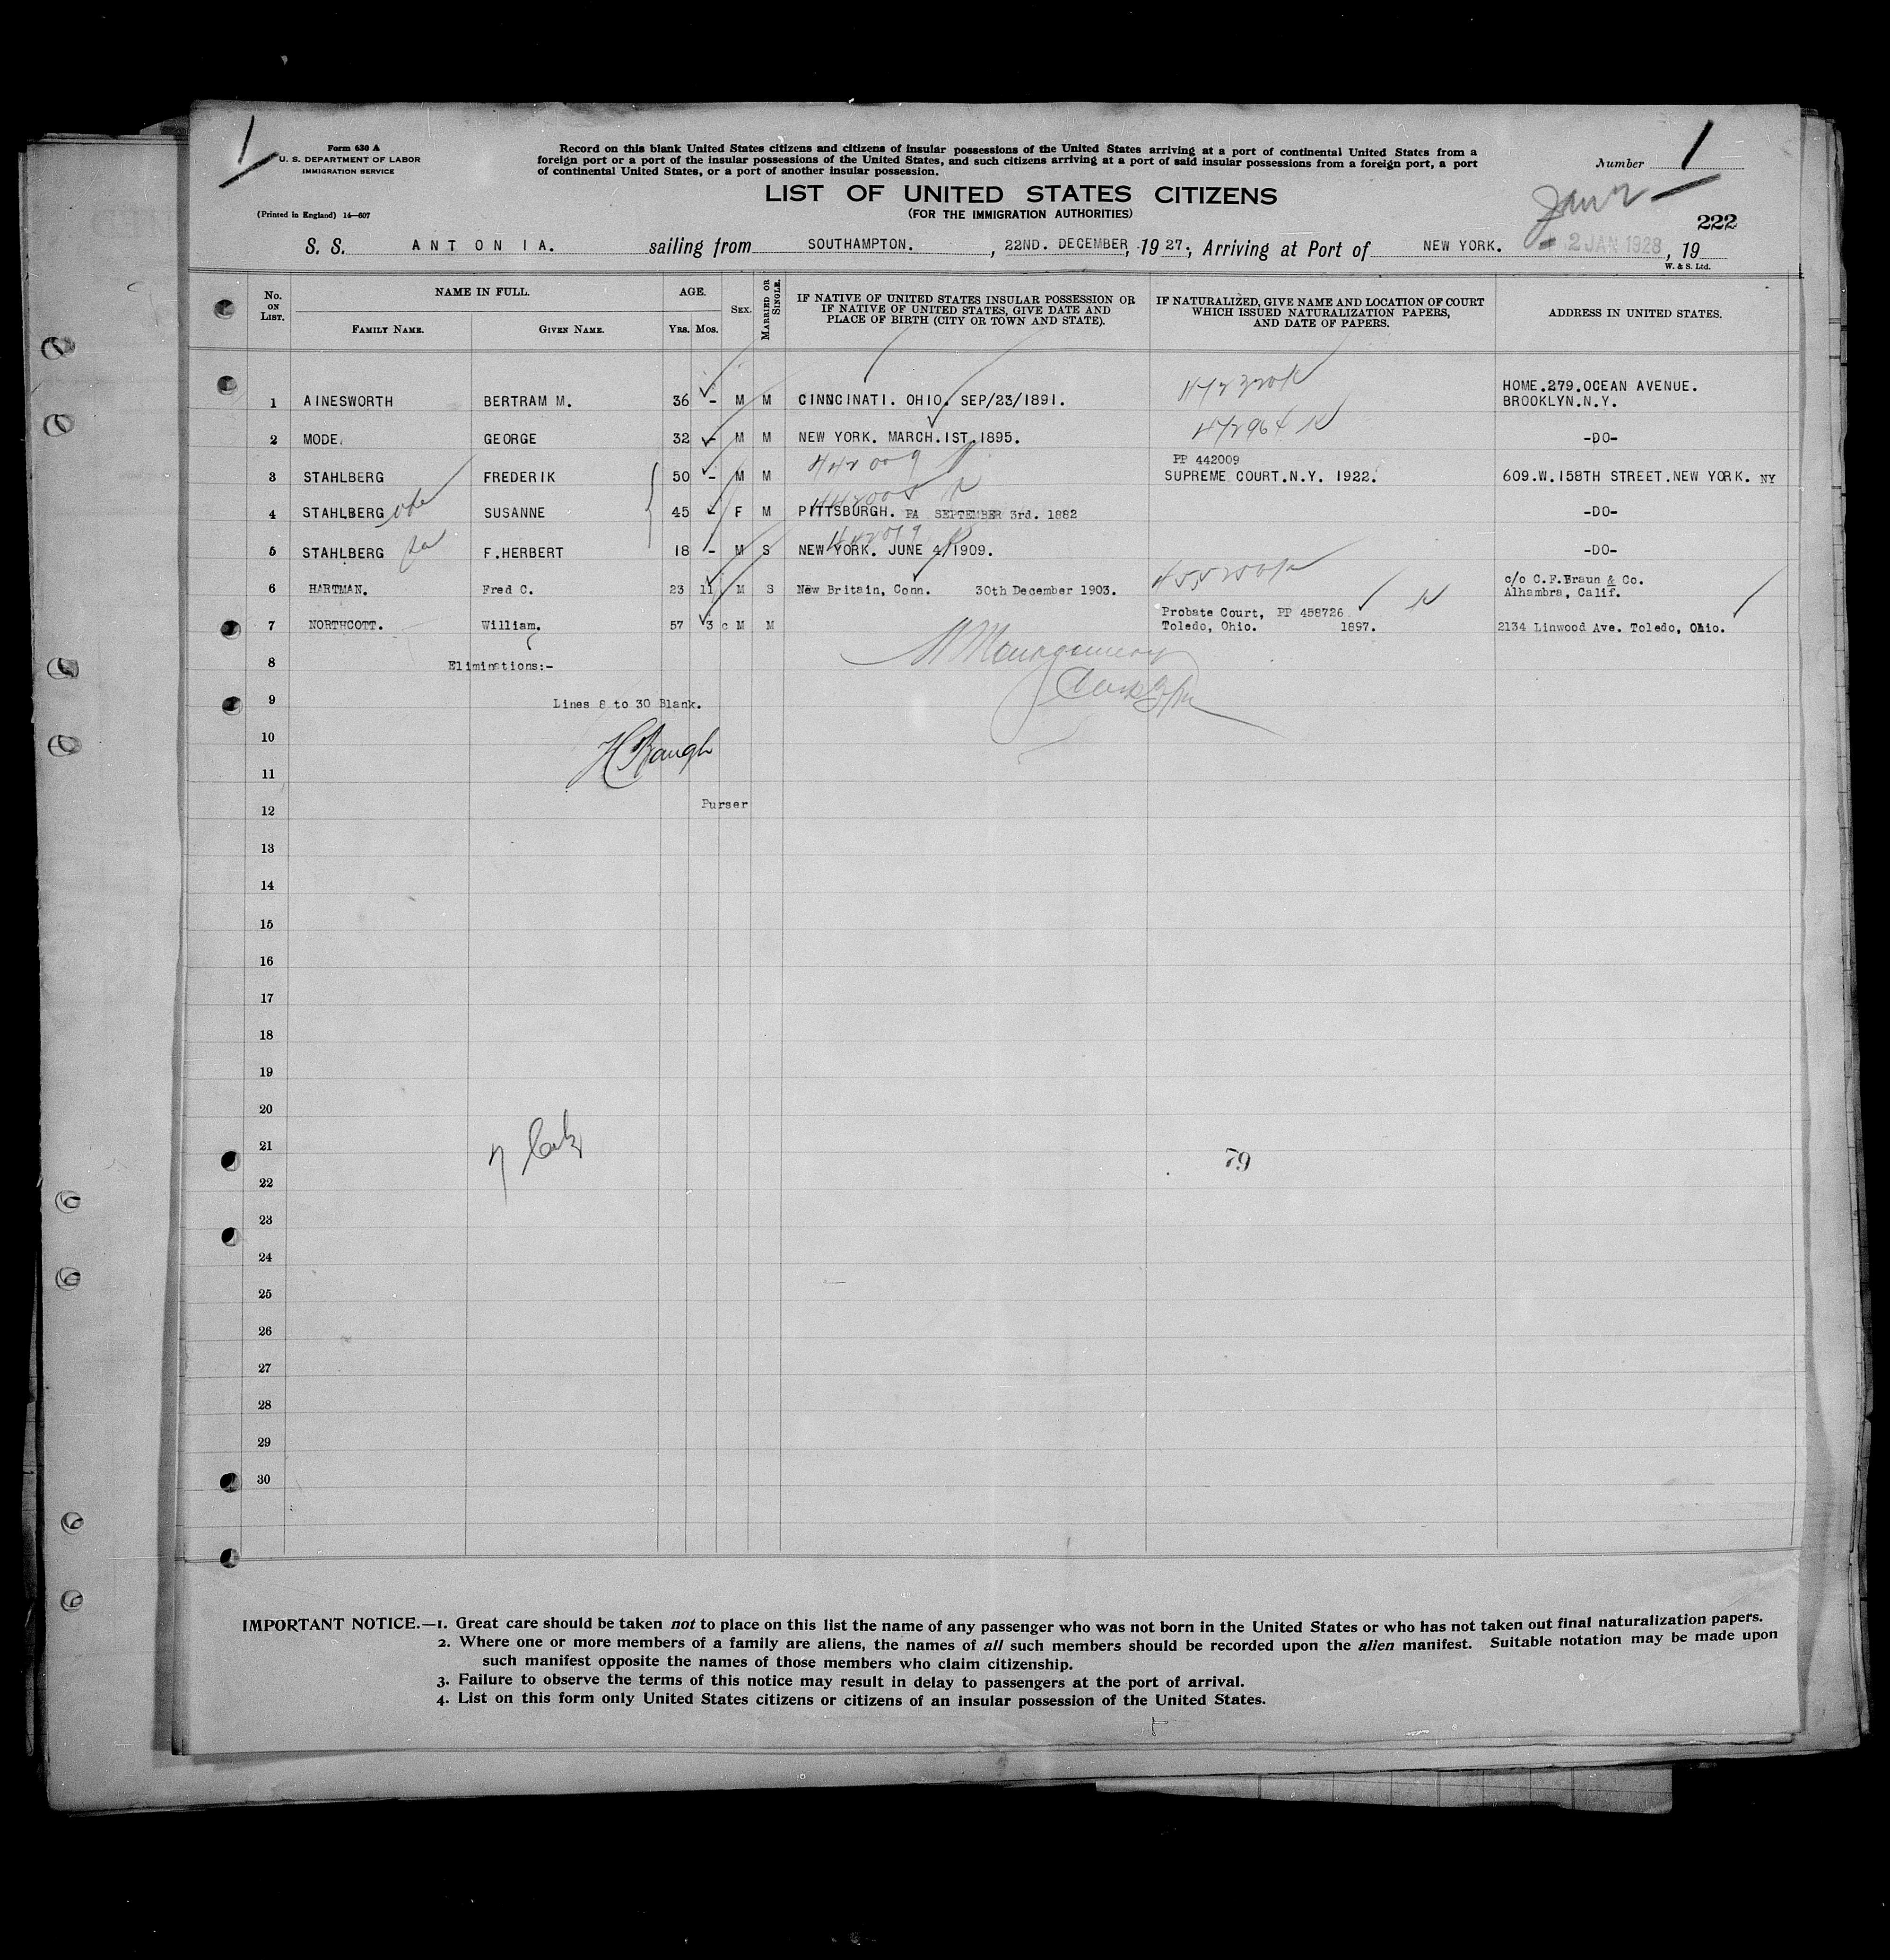 1
Form 630 A
U. S. DEPARTMENT OF LABOR
IMMIGRATION SERVICE
(Printed in England) 14—607
Record on this blank United States citizens and citizens of insular possessions of the United States arriving at a port of continental United States from a
foreign port or a port of the insular possessions of the United States, and such citizens arriving at a port of said insular possessions from a foreign port, a port
of continental United States, or a port of another insular possession.
Number 1
LIST OF UNITED STATES CITIZENS
(FOR THE IMMIGRATION AUTHORITIES)
Jan 2
222
S. S. ANTONIA. sailing from SOUTHAMPTON. , 22ND. DECEMBER, 1927., Arriving at Port of NEW YORK. 2 JAN 1928, 19
W. & S. Ltd.
No. ON LIST. NAME IN FULL. AGE. SEX. MARRIED OR SINGLE. IF NATIVE OF UNITED STATES INSULAR POSSESSION OR IF NATIVE OF UNITED STATES, GIVE DATE AND PLACE OF BIRTH (CITY OR TOWN AND STATE). IF NATURALIZED, GIVE NAME AND LOCATION OF COURT WHICH ISSUED NATURALIZATION PAPERS, AND DATE OF PAPERS. ADDRESS IN UNITED STATES.
FAMILY NAME. GIVEN NAME. Yrs. Mos.
HOME.279.OCEAN AVENUE.
1 AINESWORTH BERTRAM M. 36 - M M CINNCINATI. OHIO. SEP/23/1891. BROOKLYN.N.Y.
2 MODE. GEORGE 32 - M M NEW YORK. MARCH.1ST.1895. -DO-
442009 PP 442009
3 STAHLBERG FREDERIK 50 - M M SUPREME COURT.N.Y. 1922. 609.W.158TH STREET.NEW YORK. NY
4 STAHLBERG SUSANNE 45 - F M PITTSBURGH. PA SEPTEMBER 3rd. 1882 -DO-
5 STAHLBERG F.HERBERT 18 - M S NEW YORK. JUNE 4/1909. -DO-
c/o C.F.Braun & Co.
6 HARTMAN. Fred C. 23 11 M S New Britain, Conn. 30th December 1903. Alhambra, Calif.
Probate Court, PP 458726
7 NORTHCOTT. William. 57 3 c M M Toledo, Ohio. 1897. 2134 Linwood Ave. Toledo, Ohio.
8 Eliminations:-
9 Lines 8 to 30 Blank.
10
11
12 Purser
13
14
15
16
17
18
19
20
21
79
22
23
24
25
26
27
28
29
30
IMPORTANT NOTICE.—1. Great care should be taken not to place on this list the name of any passenger who was not born in the United States or who has not taken out final naturalization papers.
2. Where one or more members of a family are aliens, the names of all such members should be recorded upon the alien manifest. Suitable notation may be made upon
such manifest opposite the names of those members who claim citizenship.
3. Failure to observe the terms of this notice may result in delay to passengers at the port of arrival.
4. List on this form only United States citizens or citizens of an insular possession of the United States.